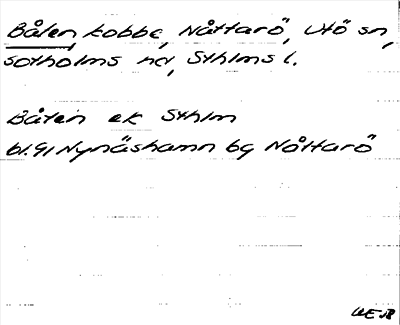 Bålen, kobbe, Nåttarö, Utö sn,
Sotholms hd, Sthlms l.
Båten ek Sthlm
bl. 91 Nynäshamn bg Nåttarö